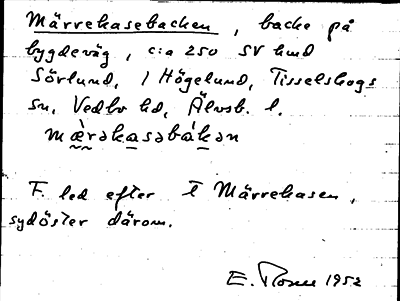 Märrekasebacken, backe på
bygdeväg, c:a 250 SV hmd
Sörlund, / Högelund, Tisselskogs
sn, Vedbo hd, Älvsb. l.
mæ̀rəkasəbákən
F. led efter t Märrekasen,
sydöster därom.
E. 1952